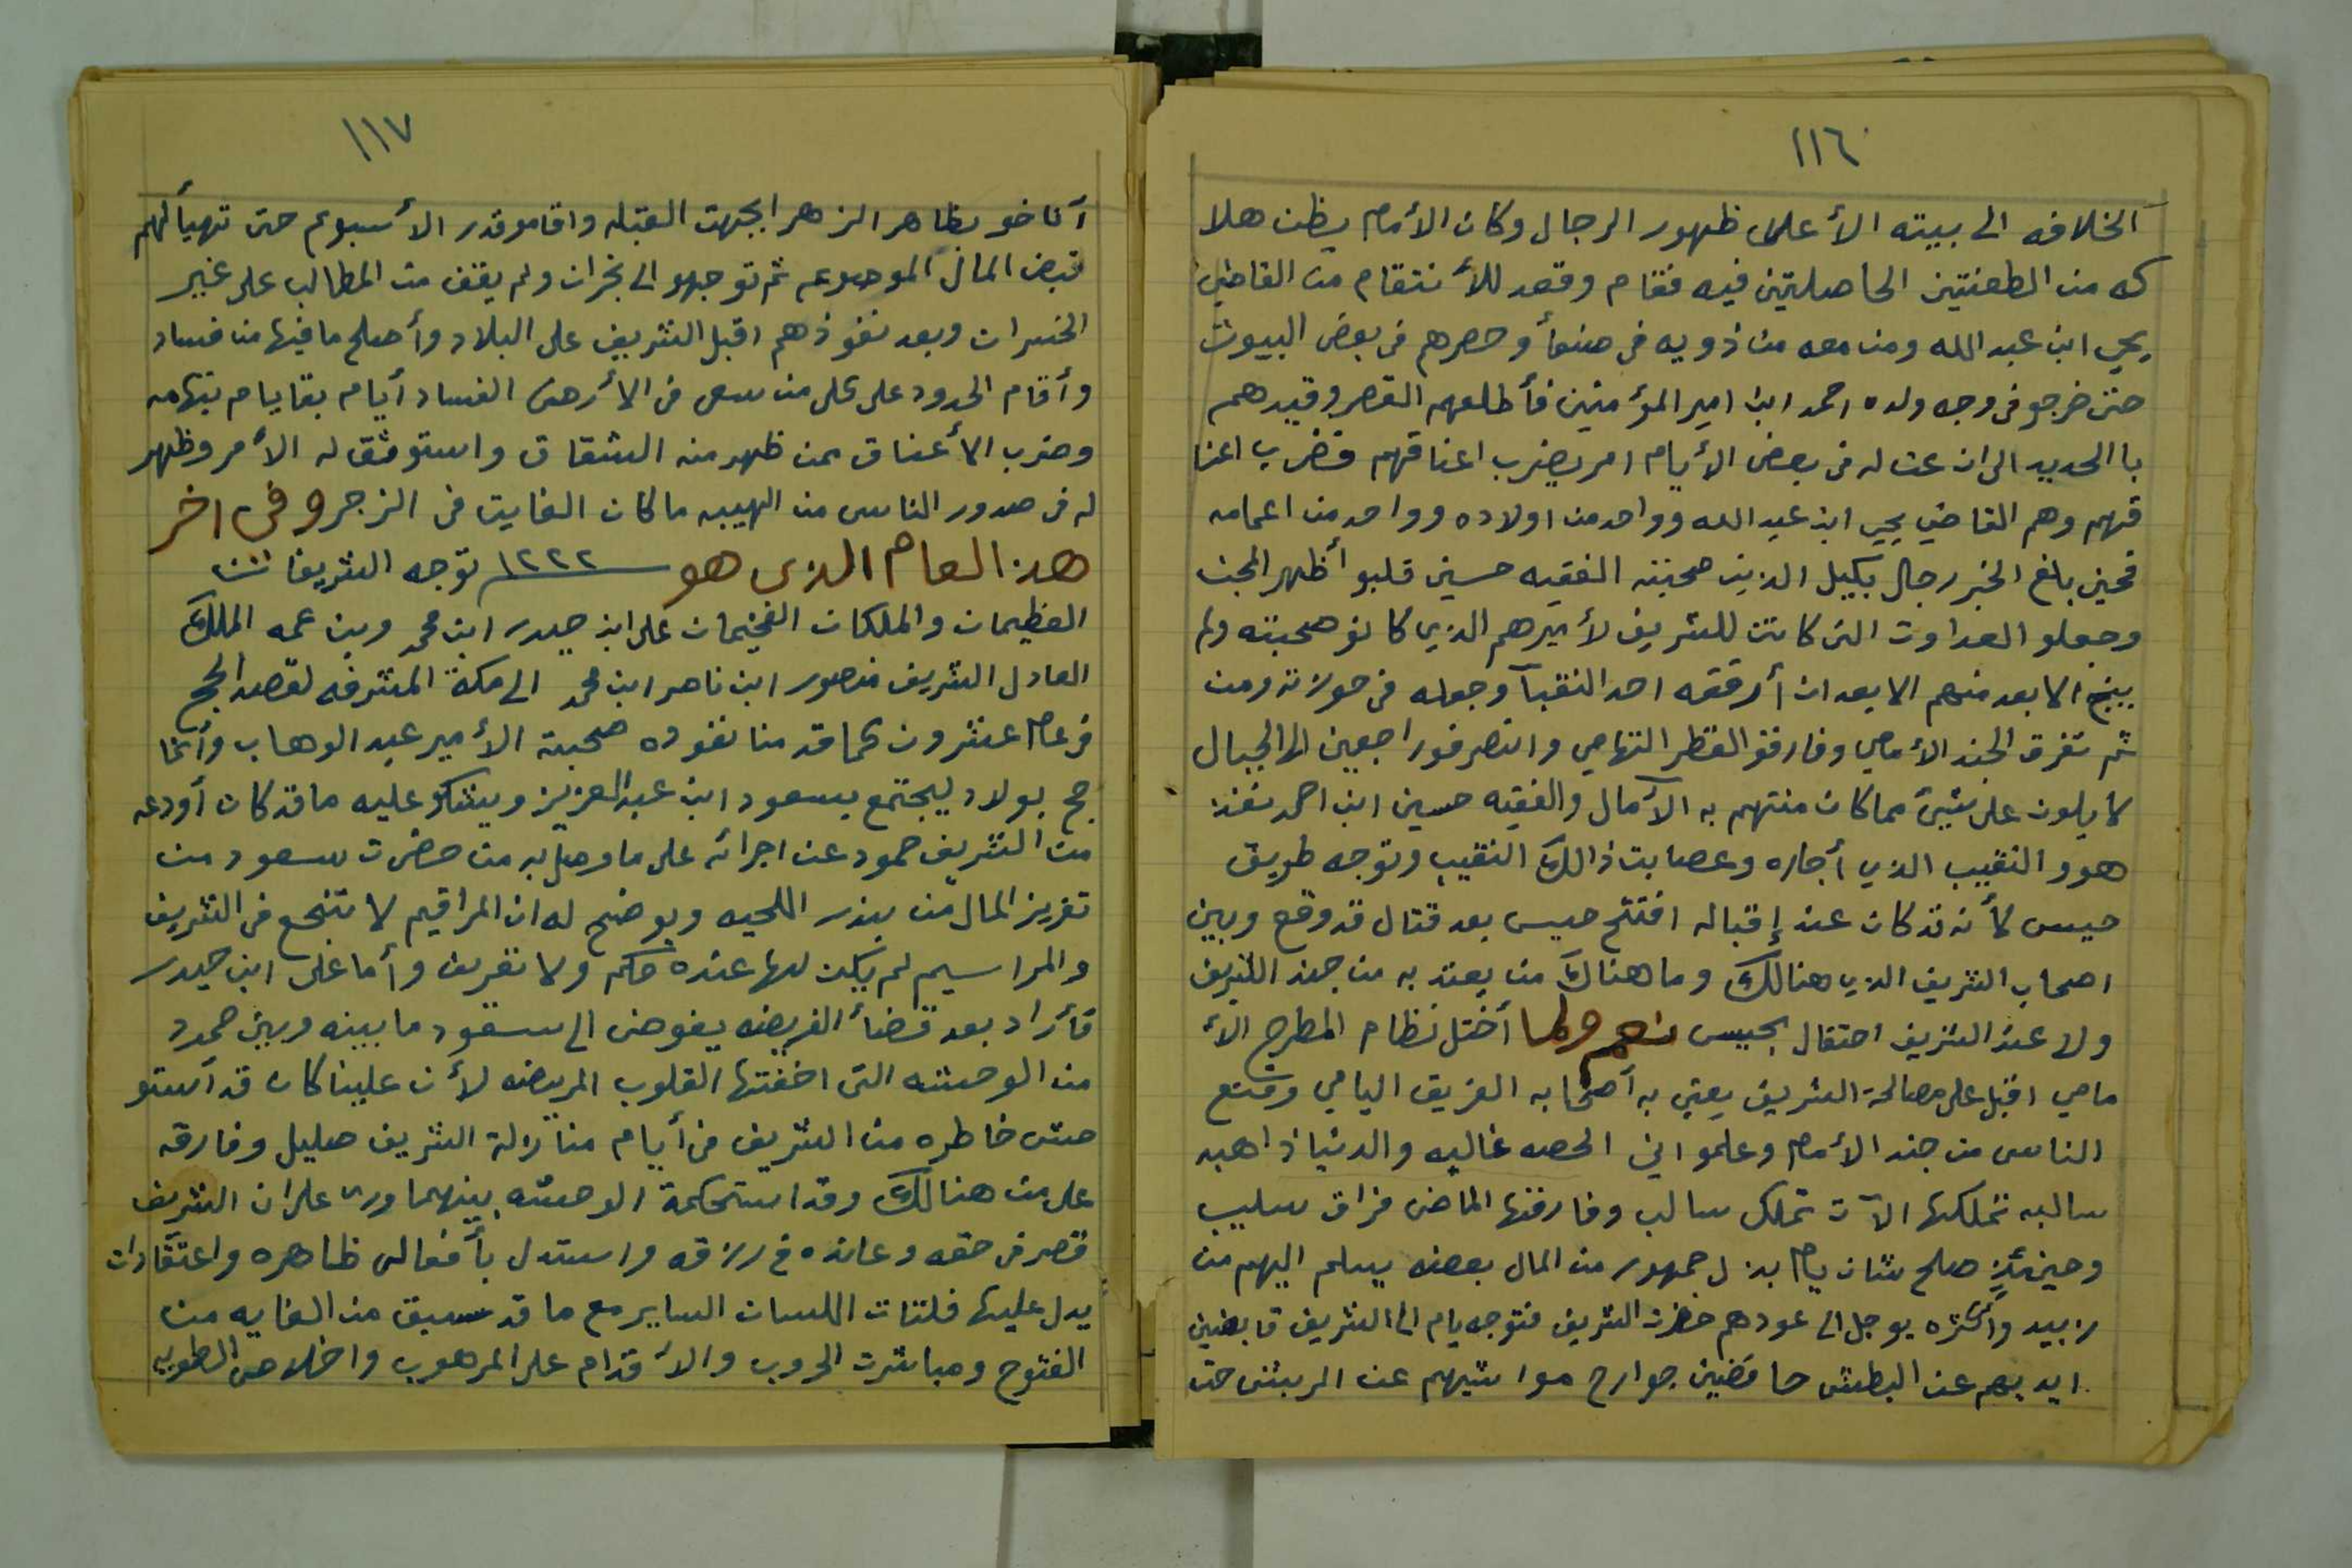 ١١٦
الخلافه الى بيته الأعلى ظهور الرجال وكان الأمام يظن هلا
كه من الطعنتين الحاصلتين فيه فقام وقعد للأنتقام من القاضي
يحيي ابن عبد الله ومن معه من ذويه في صنعأ وحصرهم في بعض البيوت
حتى خرجو في وجه ولده احمد ابن امير المؤمنين فأطلعهم القصر وقيدهم
با الحديد الى ان عن له في بعض الأيام امر يضرب اعناقهم فضرب اعنا
قهم وهم القاضي يحيي ابن عبد الله وواحد من اولاده وواحد من اعمامه
فحين بلغ الخبر رجال بكيل الذين صحبته الفقيه حسين قلبو أظهر المجن
وجعلو العداوت التى كانت للشريف لأميرهم الذي كانو صحبته ولم
ينج الا بعد منهم الا بعد ان أرفقه احد النقبآ وجعله في حوزته ومن
ثم تفرق الجند الأمامي وفارقو القطر التهامي وانصرفو راجعين الى الجبال
لا يلون على شيئ مما كان منتهم به الآمال والفقيه حسين ابن احمد نفذ
هو و النقيب الذي أجاره وعصابت ذالك النقيب وتوجه طريق
حيس لأنه قد كان عند إقباله افتتح حيس بعد قتال قد وقع وبين
اصحاب الشريف الذي هنالك وما هناك من يعتد به من جند الشريف
ولا عند الشريف احتفال بحيس نعم ولما أختل نظام المطرح الأ
مامي اقبل على مصالحة الشريف يعني به أصحابه الفريق اليامي وقنع
الناس من جند الأمام وعلمو اني الحصه غاليه والدنيا ذاهبه
سالبه تملكها الآت تملك سالب وفارقها الماضى فراق سليب
وحينئذٍ صلح شان يام بذل جمهور من المال بعضه يسلم اليهم من
زبيد وأكثره يوجل الى عودهم حضرت الشريف فتوجه يام الى الشريف قابضين
ايديهم عن البطش خافضين جوارح مواشيهم عن الربش حتى
١١٧
آناخو بظاهر الزهرا بجهت القبله واقامو قدر الأسبوع حتى تهيأ لهم
قبض المال الموضوعه ثم توجهو الى نجران ولم يقف من المطالب على غير
الخسران وبعد نفوذهم اقبل الشريف على البلاد وأصلح ما فيها من فساد
وأقام الحدود على كل من سعى في الأرض الفساد أيام بقا يام بتهامه
وضرب الأعناق ممن ظهر منه الشقاق واستوثق له الأمر وظهر
له في صدور الناس من الهيبه ما كان الغايت في الزجر وفي اخر
هذ العام الذى هو ١٢٢٢ توجه الشريفان
العظيمان والملكان الفخيمان على ابن حيدر ابن محمد وبن عمه الملك
العادل الشريف منصور ابن ناصر ابن محمد الى مكة المشرفه لقصد الحج
في عام عشرون كما قد منا نفوده صحبة الأمير عبد الوهاب وأنما
حج بولاد ليجتمع بسعود ابن عبد العزيز ويشكو عليه ما قد كان أودعه
من الشريف حمود عن اجرائه على ما وصل به من حضرت سعود من
تقريز المال من بندر اللحيه ويوضح له ان المراقيم لا تنجع في الشريف
والمراسيم لم يكن لها عنده حكم ولا تقريف وأما على ابن حيدر
فأراد بعد قضأ الفريضه يفوض الى سعود ما بينه وبين حمود
من الوحشه التى اخفتها القلوب المريضه لأن علينا كان قد أستو
حش خاطره من الشريف في أيام منازلة الشريف صليل وفارقه
على من هنالك وقد استحكمة الوحشه بينهما ورى على ان الشريف
قصر في حقه وعانده في رزقه واستدل بأفعال ظاهره واعتقادات
يدل عليها فلتات اللسان الساير مع ما قد سبق من الغايه من
الفتوح ومباشرت الحروب والأقدام على المرهوب واخلاص الطويه